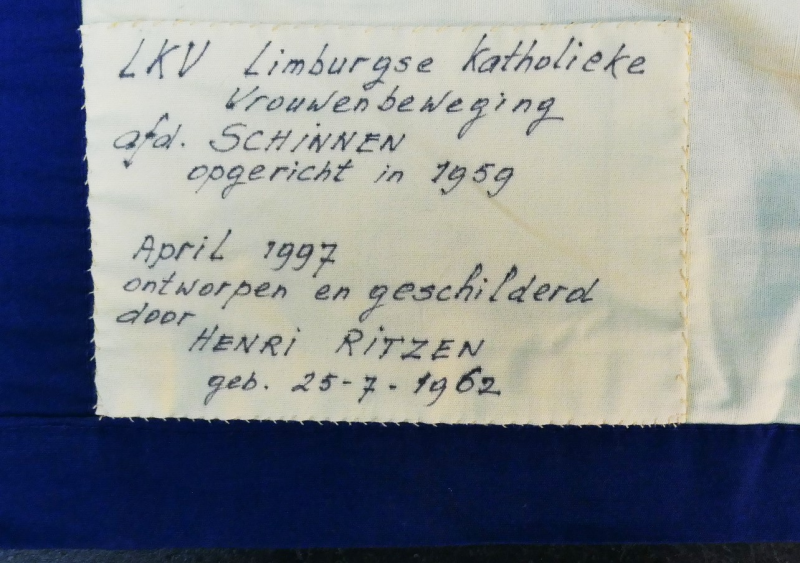 LKV Limburgse Katholieke
Vrouwenbeweging
afd. SCHINNEN
opgericht in 1959
April 1997
ontworpen en geschilderd
door
HENRI RITZEN
geb. 25-7-1962